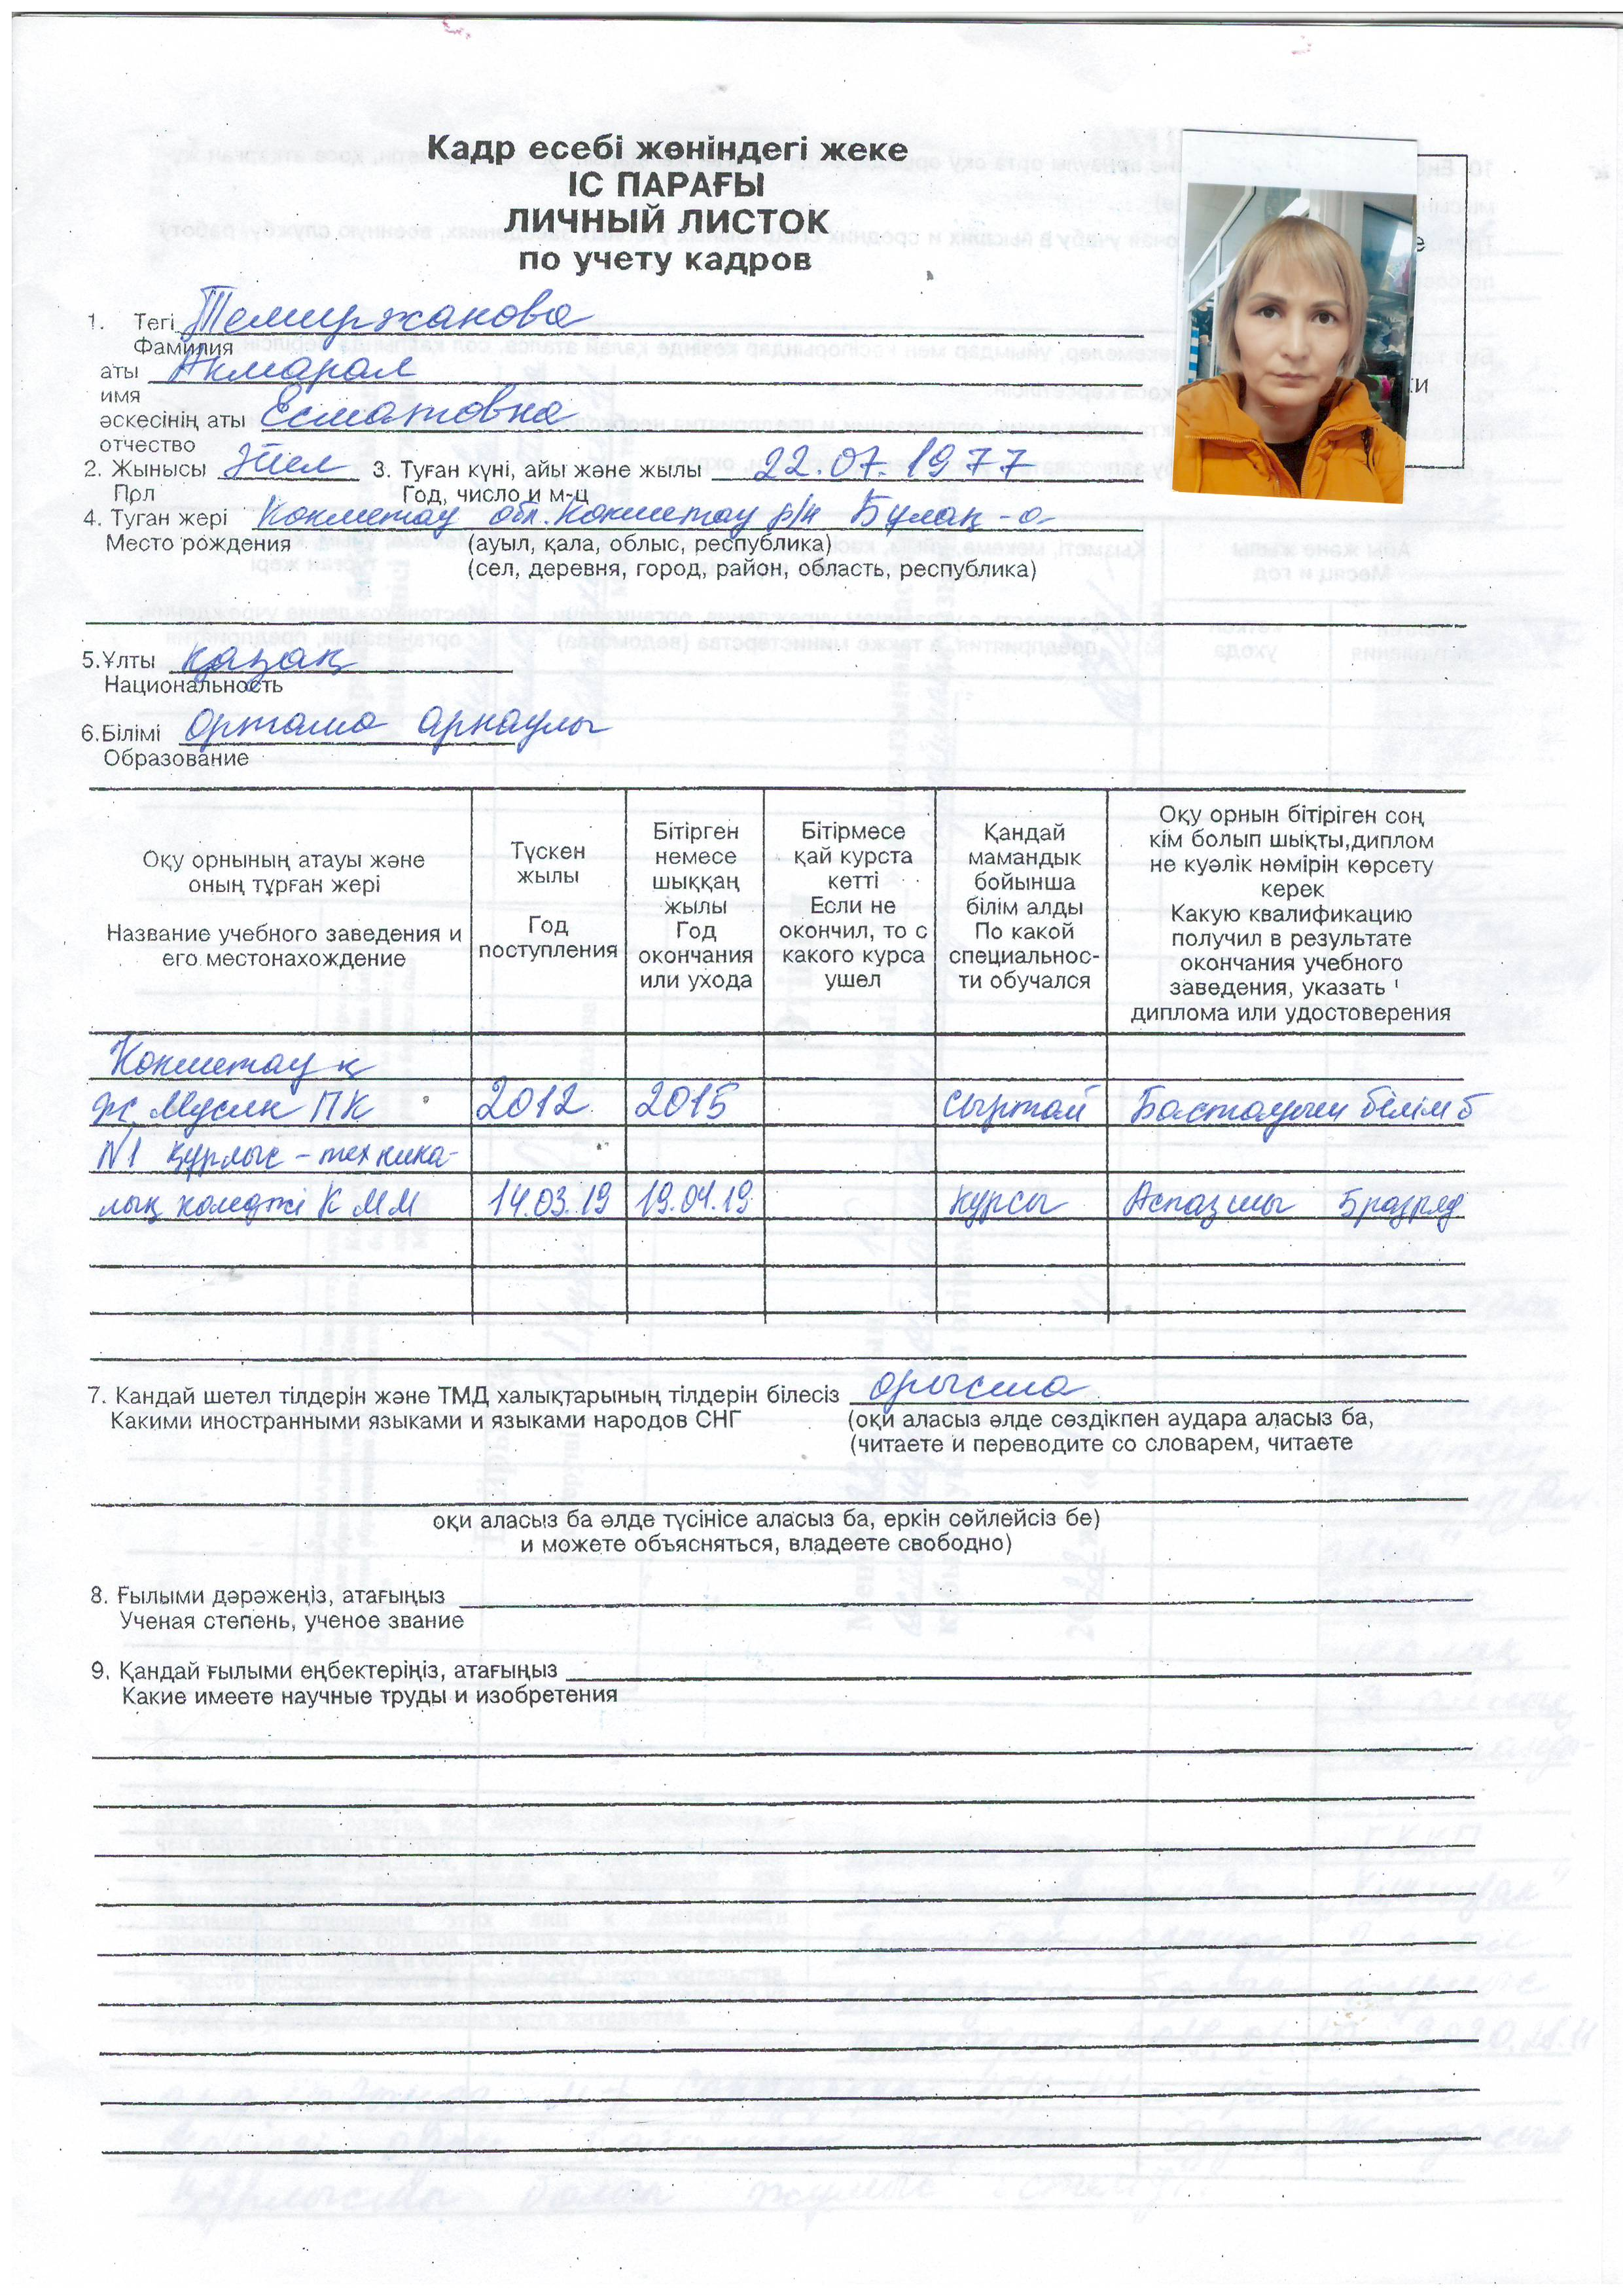 Кадр есебі жөніндегі жеке
ІС ПАРАҒЫ
ЛИЧНЫЙ ЛИСТОК
по учету кадров
1. Тегі Темиржанова
Фамилия
аты Акмарал
имя
әскесінің аты Есматовна
отчество
2. Жынысы әйел 3. Туған күні, айы және жылы 22.07.1977
Прл Год, число и м-ц
4. Туған жері Көкшетау обл. Көкшетау р/н Бұлақ-а-
Место рождения (ауыл, қала, облыс, республика)
(сел, деревня, город, район, область, республика)
5.Ұлты қазақ
Национальность
6.Білімі орташа арнаулы
Образование
Оқу орнының атауы және
оның тұрған жері
Название учебного заведения и
его местонахождение
Түскен
жылы
Год
поступления
Бітірген
немесе
шыққан
жылы
Год
окончания
или ухода
Бітірмесе
қай курста
кетті
Если не
окончил, то с
какого курса
ушел
Қандай
мамандық
бойынша
білім алды
По какой
специальнос-
ти обучался
Оқу орнын бітіріген соң
кім болып шықты,диплом
не куәлік нөмірін көрсету
керек
Какую квалификацию
получил в результате
окончания учебного
заведения, указать
диплома или удостоверения
Көкшетау қ
Ж Мусин ПК 2012 2015 сыртай Бастауыш білім б
N1 құрлыс-техника-
лық коледжі КММ 14.03.19 19.04.19 курсы Аспазшы разряд
7. Кандай шетел тілдерін және ТМД халықтарының тілдерін білесіз орысша
Какими иностранными языками и языками народов СНГ (оқи аласыз әлде сөздікпен аудара аласыз ба,
(читаете и переводите со словарем, читаете
оқи аласыз ба әлде түсінісе аласыз ба, еркін сөйлейсіз бе)
и можете объясняться, владеете свободно)
8. Ғылыми дәрәжеңіз, атағыңыз
Ученая степень, ученое звание
9. Қандай ғылыми еңбектеріңіз, атағыңыз
Какие имеете научные труды и изобретения